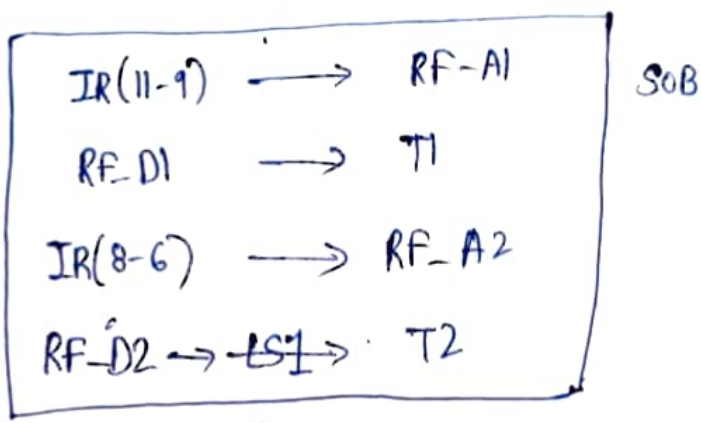 IR(11-9) → RF-A1
SOB
RF_D1 → T1
IR(8-6) → RF_A2
RF_D2 → LS1 → T2